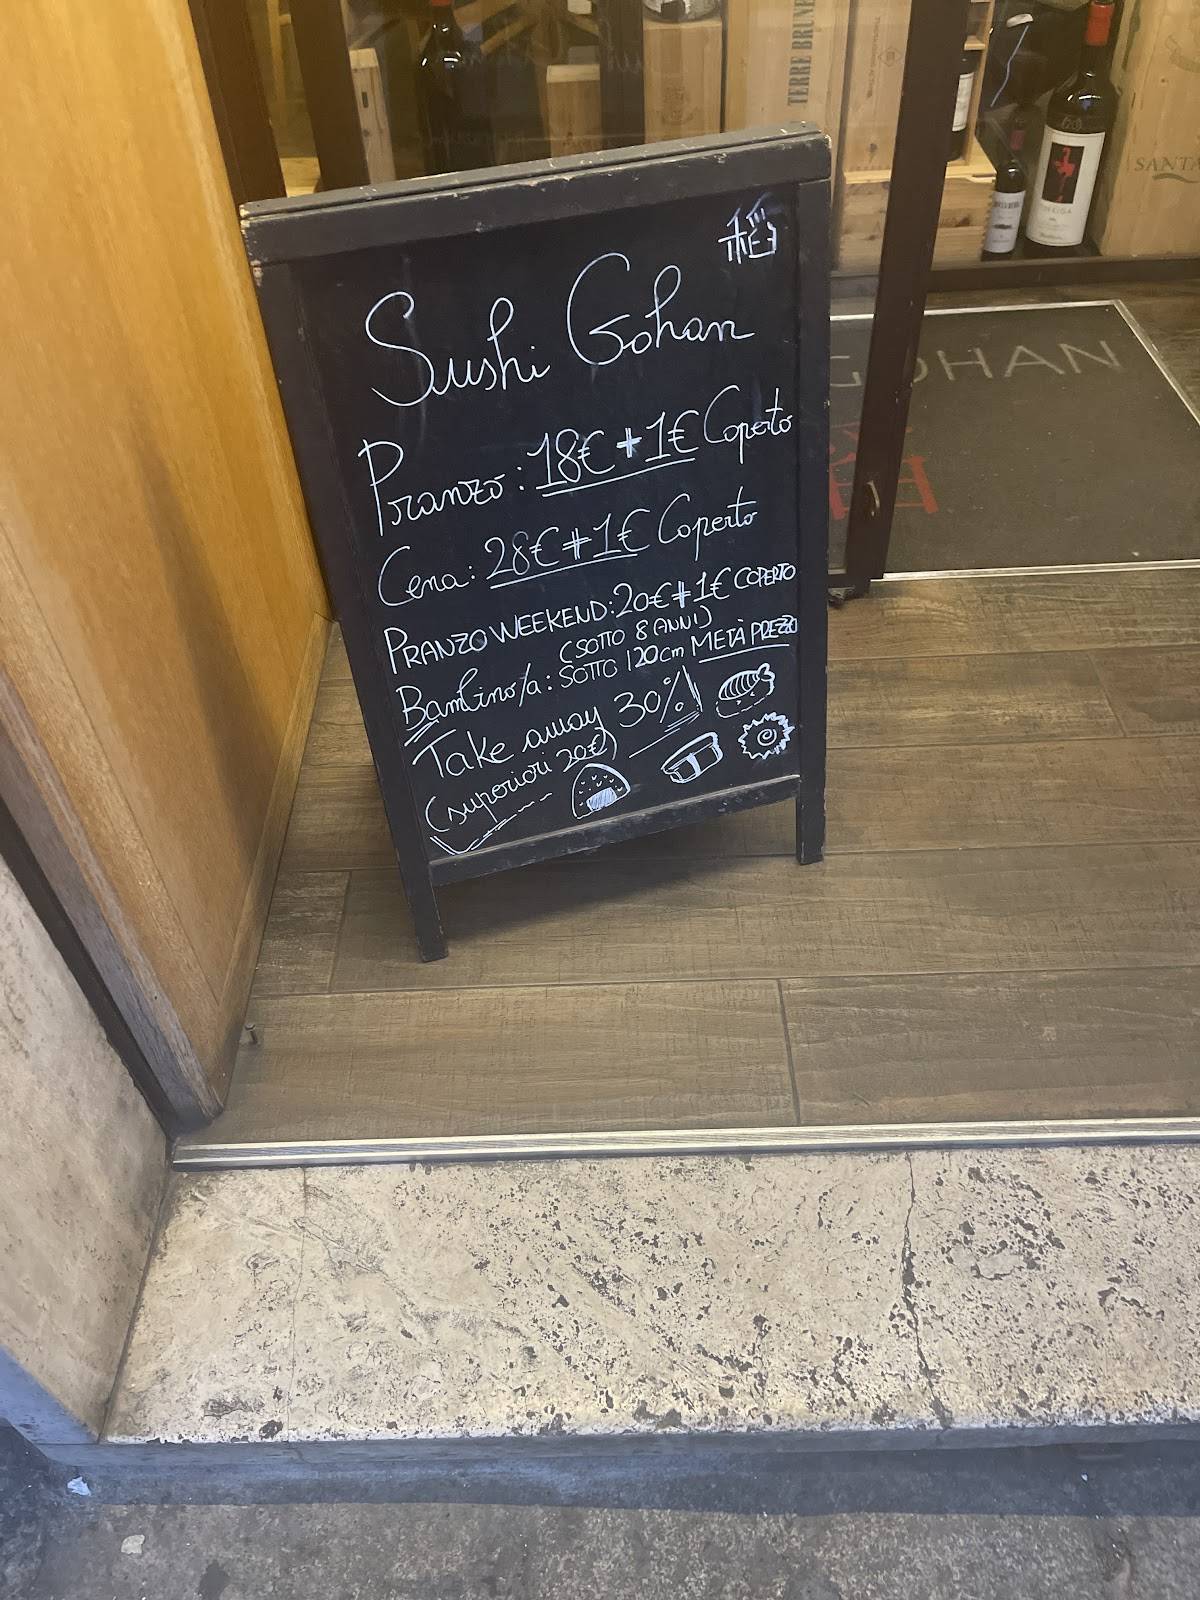 TERRE BRUNE
SANTA
Sushi Gohan
Pranzo: 18€ + 1€ Coperto
Cena: 28€ + 1€ Coperto
PRANZO WEEKEND: 20€ + 1€ COPERTO
(SOTTO 8 ANNI)
Bambino/a: SOTTO 120cm METÀ PREZZO
Take away 30%
(superiori 20€)
GOHAN